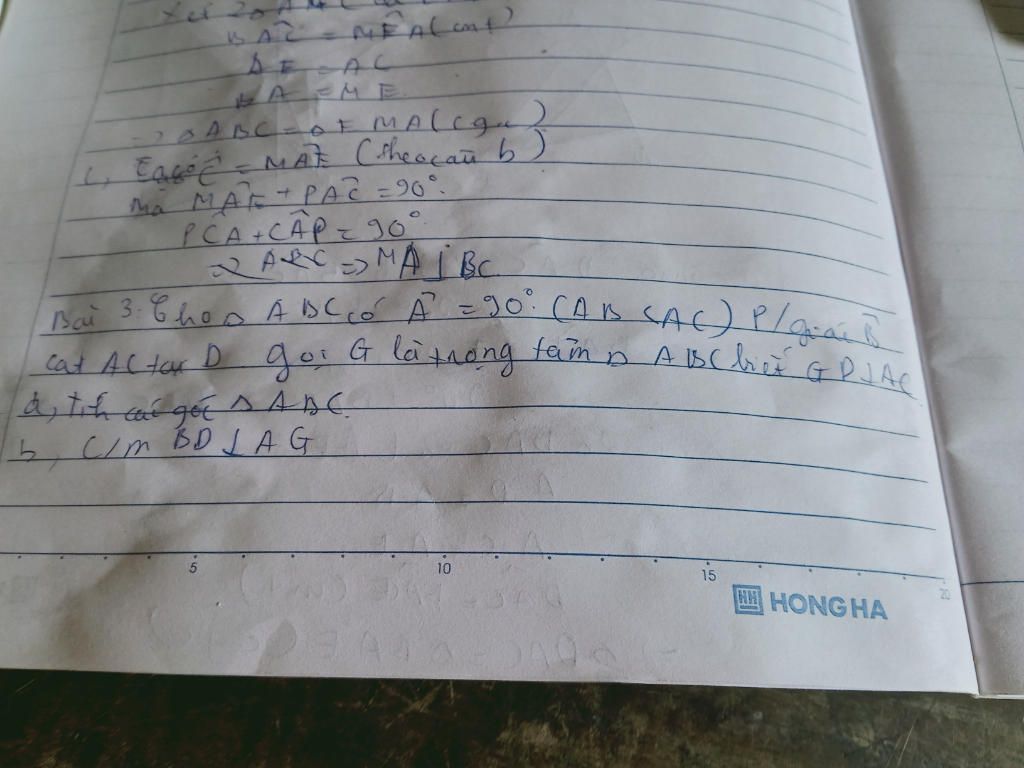 BAC = MEA (cmt)
AE = AC
EA = ME
=> ΔABC = ΔEMA (cgc)
c, = MAE (theo câu b)
Mà MAE + PAC = 90°.
PCA + CAP = 90°
=> MA ⊥ BC
Bài 3: Cho Δ ABC có A = 90°. (AB < AC) P/giác B
cắt AC tại D gọi G là trọng tâm Δ ABC biết GD ⊥ AC
a, tính các góc Δ ABC.
b, C/m BD ⊥ AG
5 10 15 20
HH HONG HA